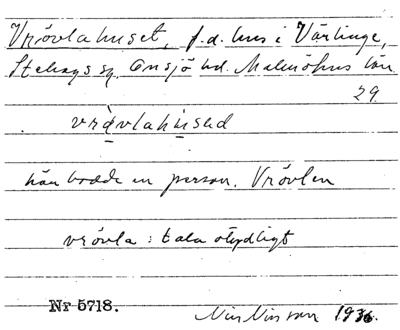 Vrövlahuset, f.d. hus i Värlinge,
Stehags sn. Onsjö hd. Malmöhus län
29
vrövlahused
här bodde en person. Vrövlen
vrövla : tala otydligt
Nr 5718.
Nils Nilsson 1936.